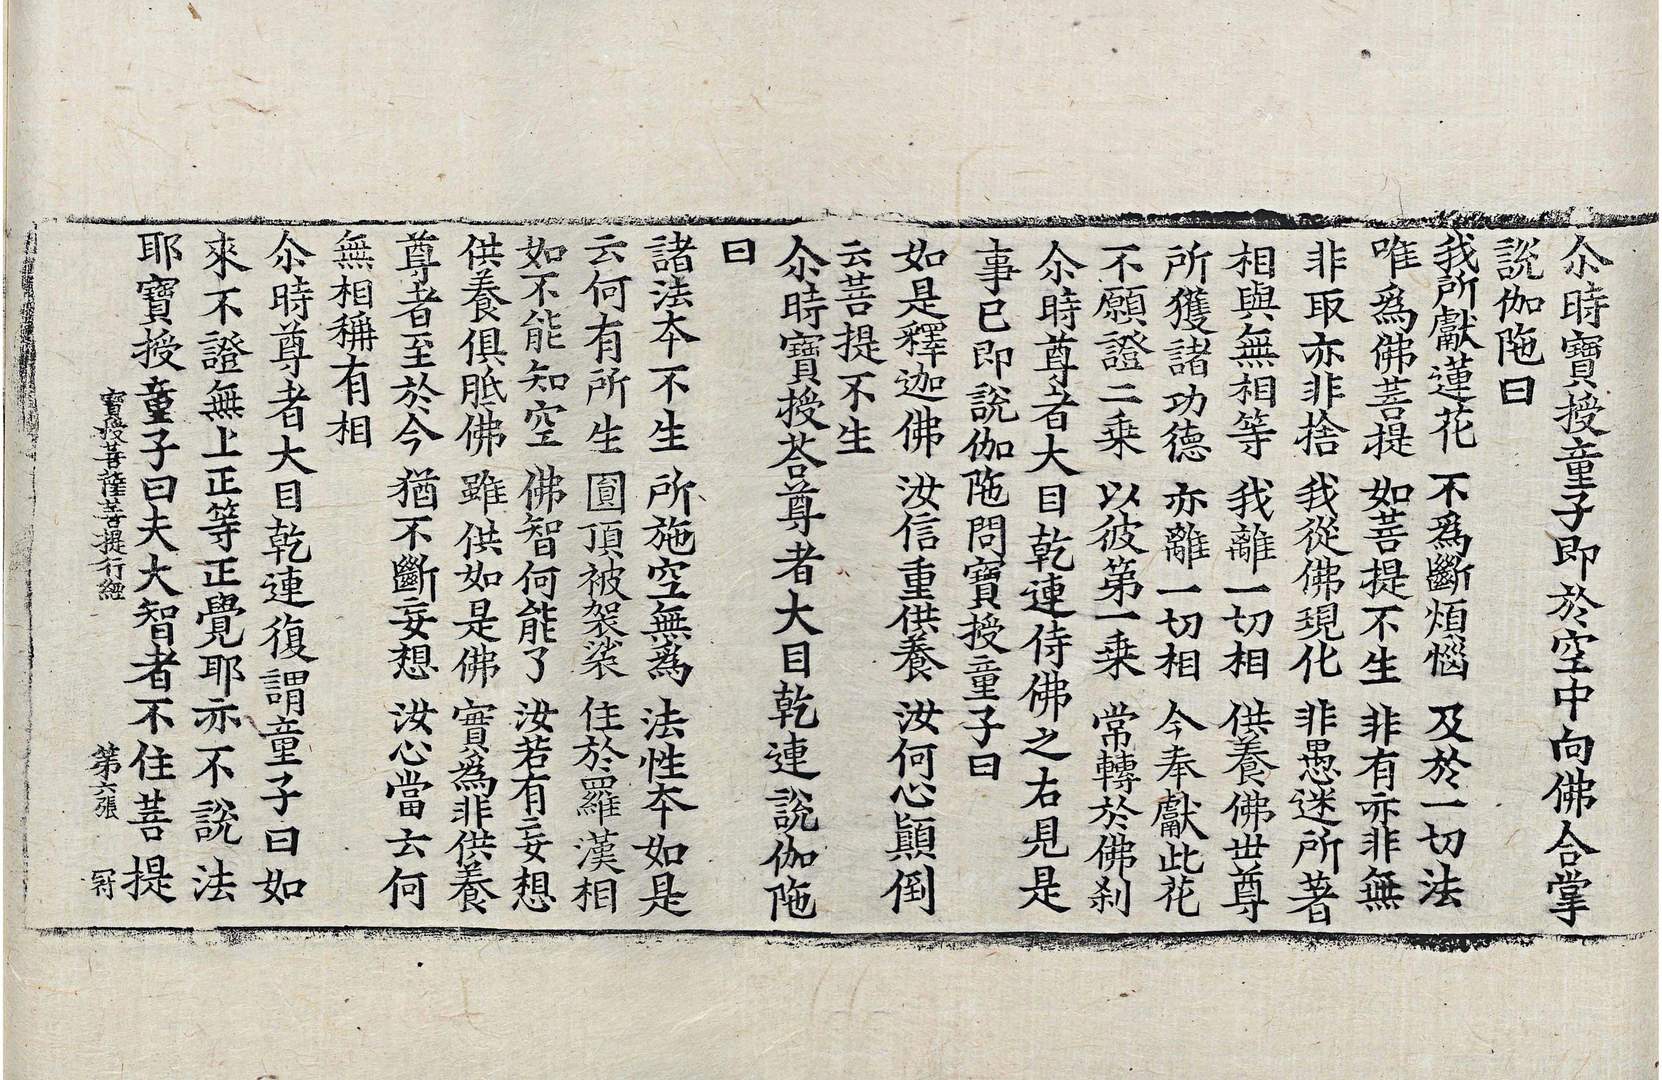 尒時寶授童子即於空中向佛合掌
說伽陁曰
我所獻蓮花 不爲斷煩惱 及於一切法
唯爲佛菩提 如菩提不生 非有亦非無
非取亦非捨 我從佛現化 非愚迷所著
相與無相等 我離一切相 供養佛世尊
所獲諸功德 亦離一切相 今奉獻此花
不願證二乘 以彼第一乘 常轉於佛刹
尒時尊者大目乾連侍佛之右見是
事已即說伽陁問寶授童子曰
如是釋迦佛 汝信重供養 汝何心顚倒
云菩提不生
尒時寶授荅尊者大目乾連說伽陁
曰
諸法夲不生 所施空無爲 法性夲如是
云何有所生 圎頂被袈裟 住於羅漢相
如不能知空 佛智何能了 汝若有妄想
供養俱胝佛 雖供如是佛 實爲非供養
尊者至於今 猶不斷妄想 汝心當云何
無相稱有相
尒時尊者大目乾連復謂童子曰如
來不證無上正等正覺耶亦不說法
耶寶授童子曰夫大智者不住菩提
寶授菩薩菩提行經 第六張 冠